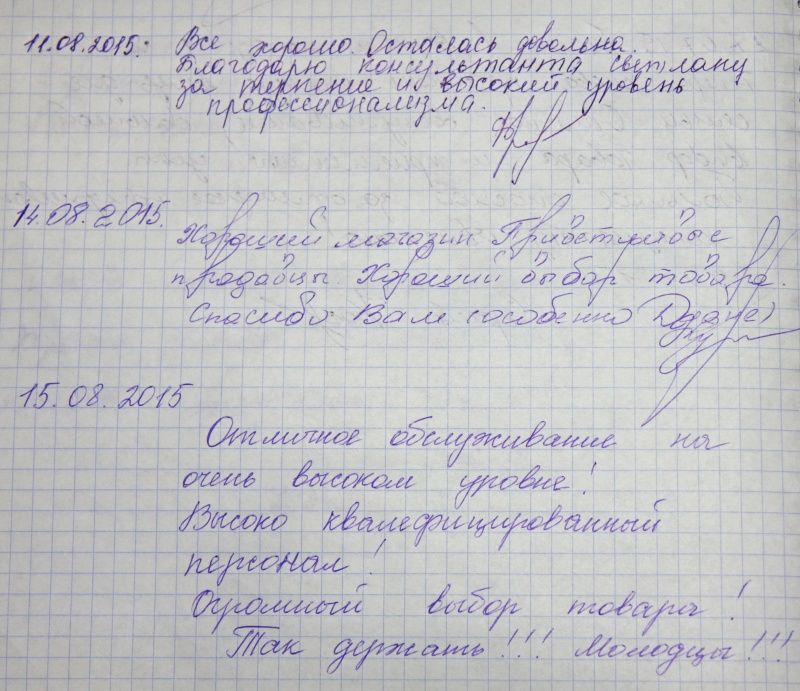 11.08.2015: Все хорошо. Осталась довольна.
Благодарю консультанта светлану
за терпение и высокий уровень
профессионализма.
14.08.2015. Хороший магазин Приветливые
продавцы. Хороший выбор товара.
Спасибо Вам (особенно
15.08.2015
Отличное обслуживание на
очень высоком уровне!
Высоко квалефицированный
персонал!
Огромный выбор товара!
Так держать!!! Молодцы!!!